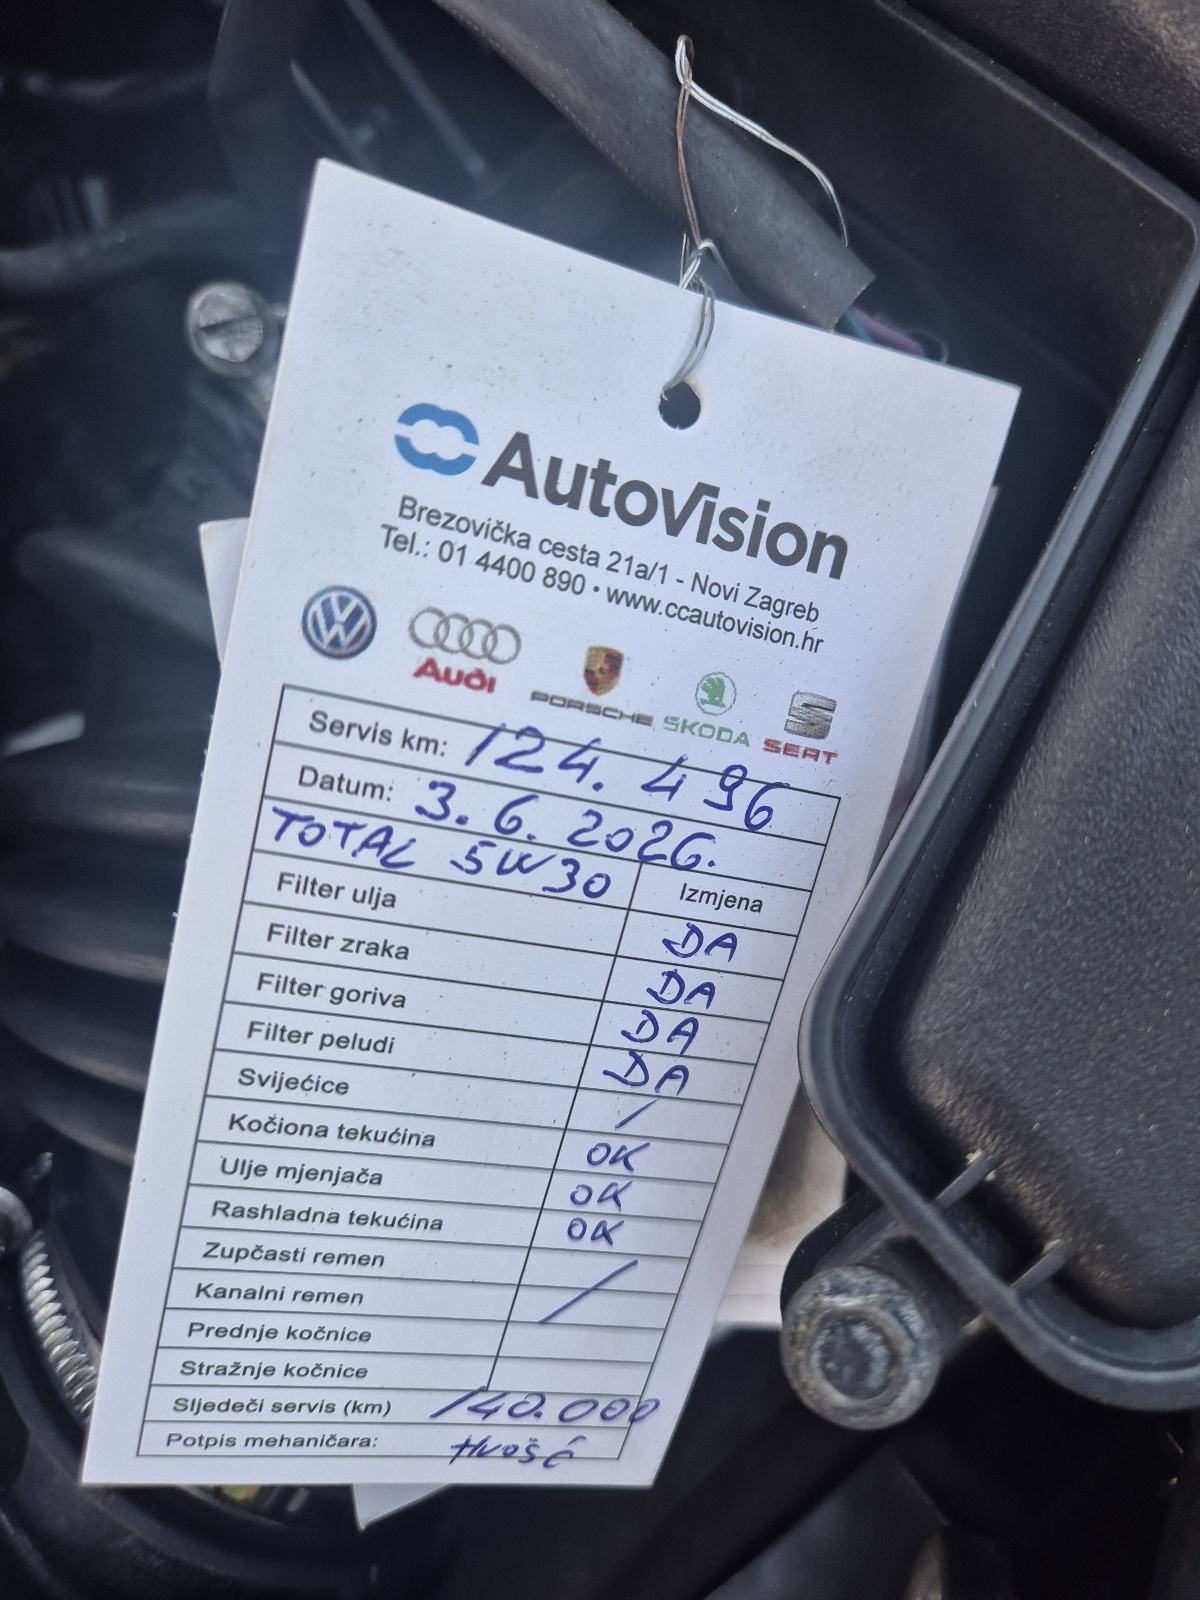 AutoVision
Brezovička cesta 21a/1 - Novi Zagreb
Tel.: 01 4400 890 • www.ccautovision.hr
Audi
PORSCHE
ŠKODA
SEAT
Servis km: 124.496
Datum: 3.6.2026.
TOTAL 5W30 Izmjena
Filter ulja DA
Filter zraka DA
Filter goriva DA
Filter peludi DA
Svijećice /
Kočiona tekućina OK
Ulje mjenjača OK
Rashladna tekućina OK
Zupčasti remen /
Kanalni remen
Prednje kočnice
Stražnje kočnice
Sljedeči servis (km) 140.000
Potpis mehaničara: